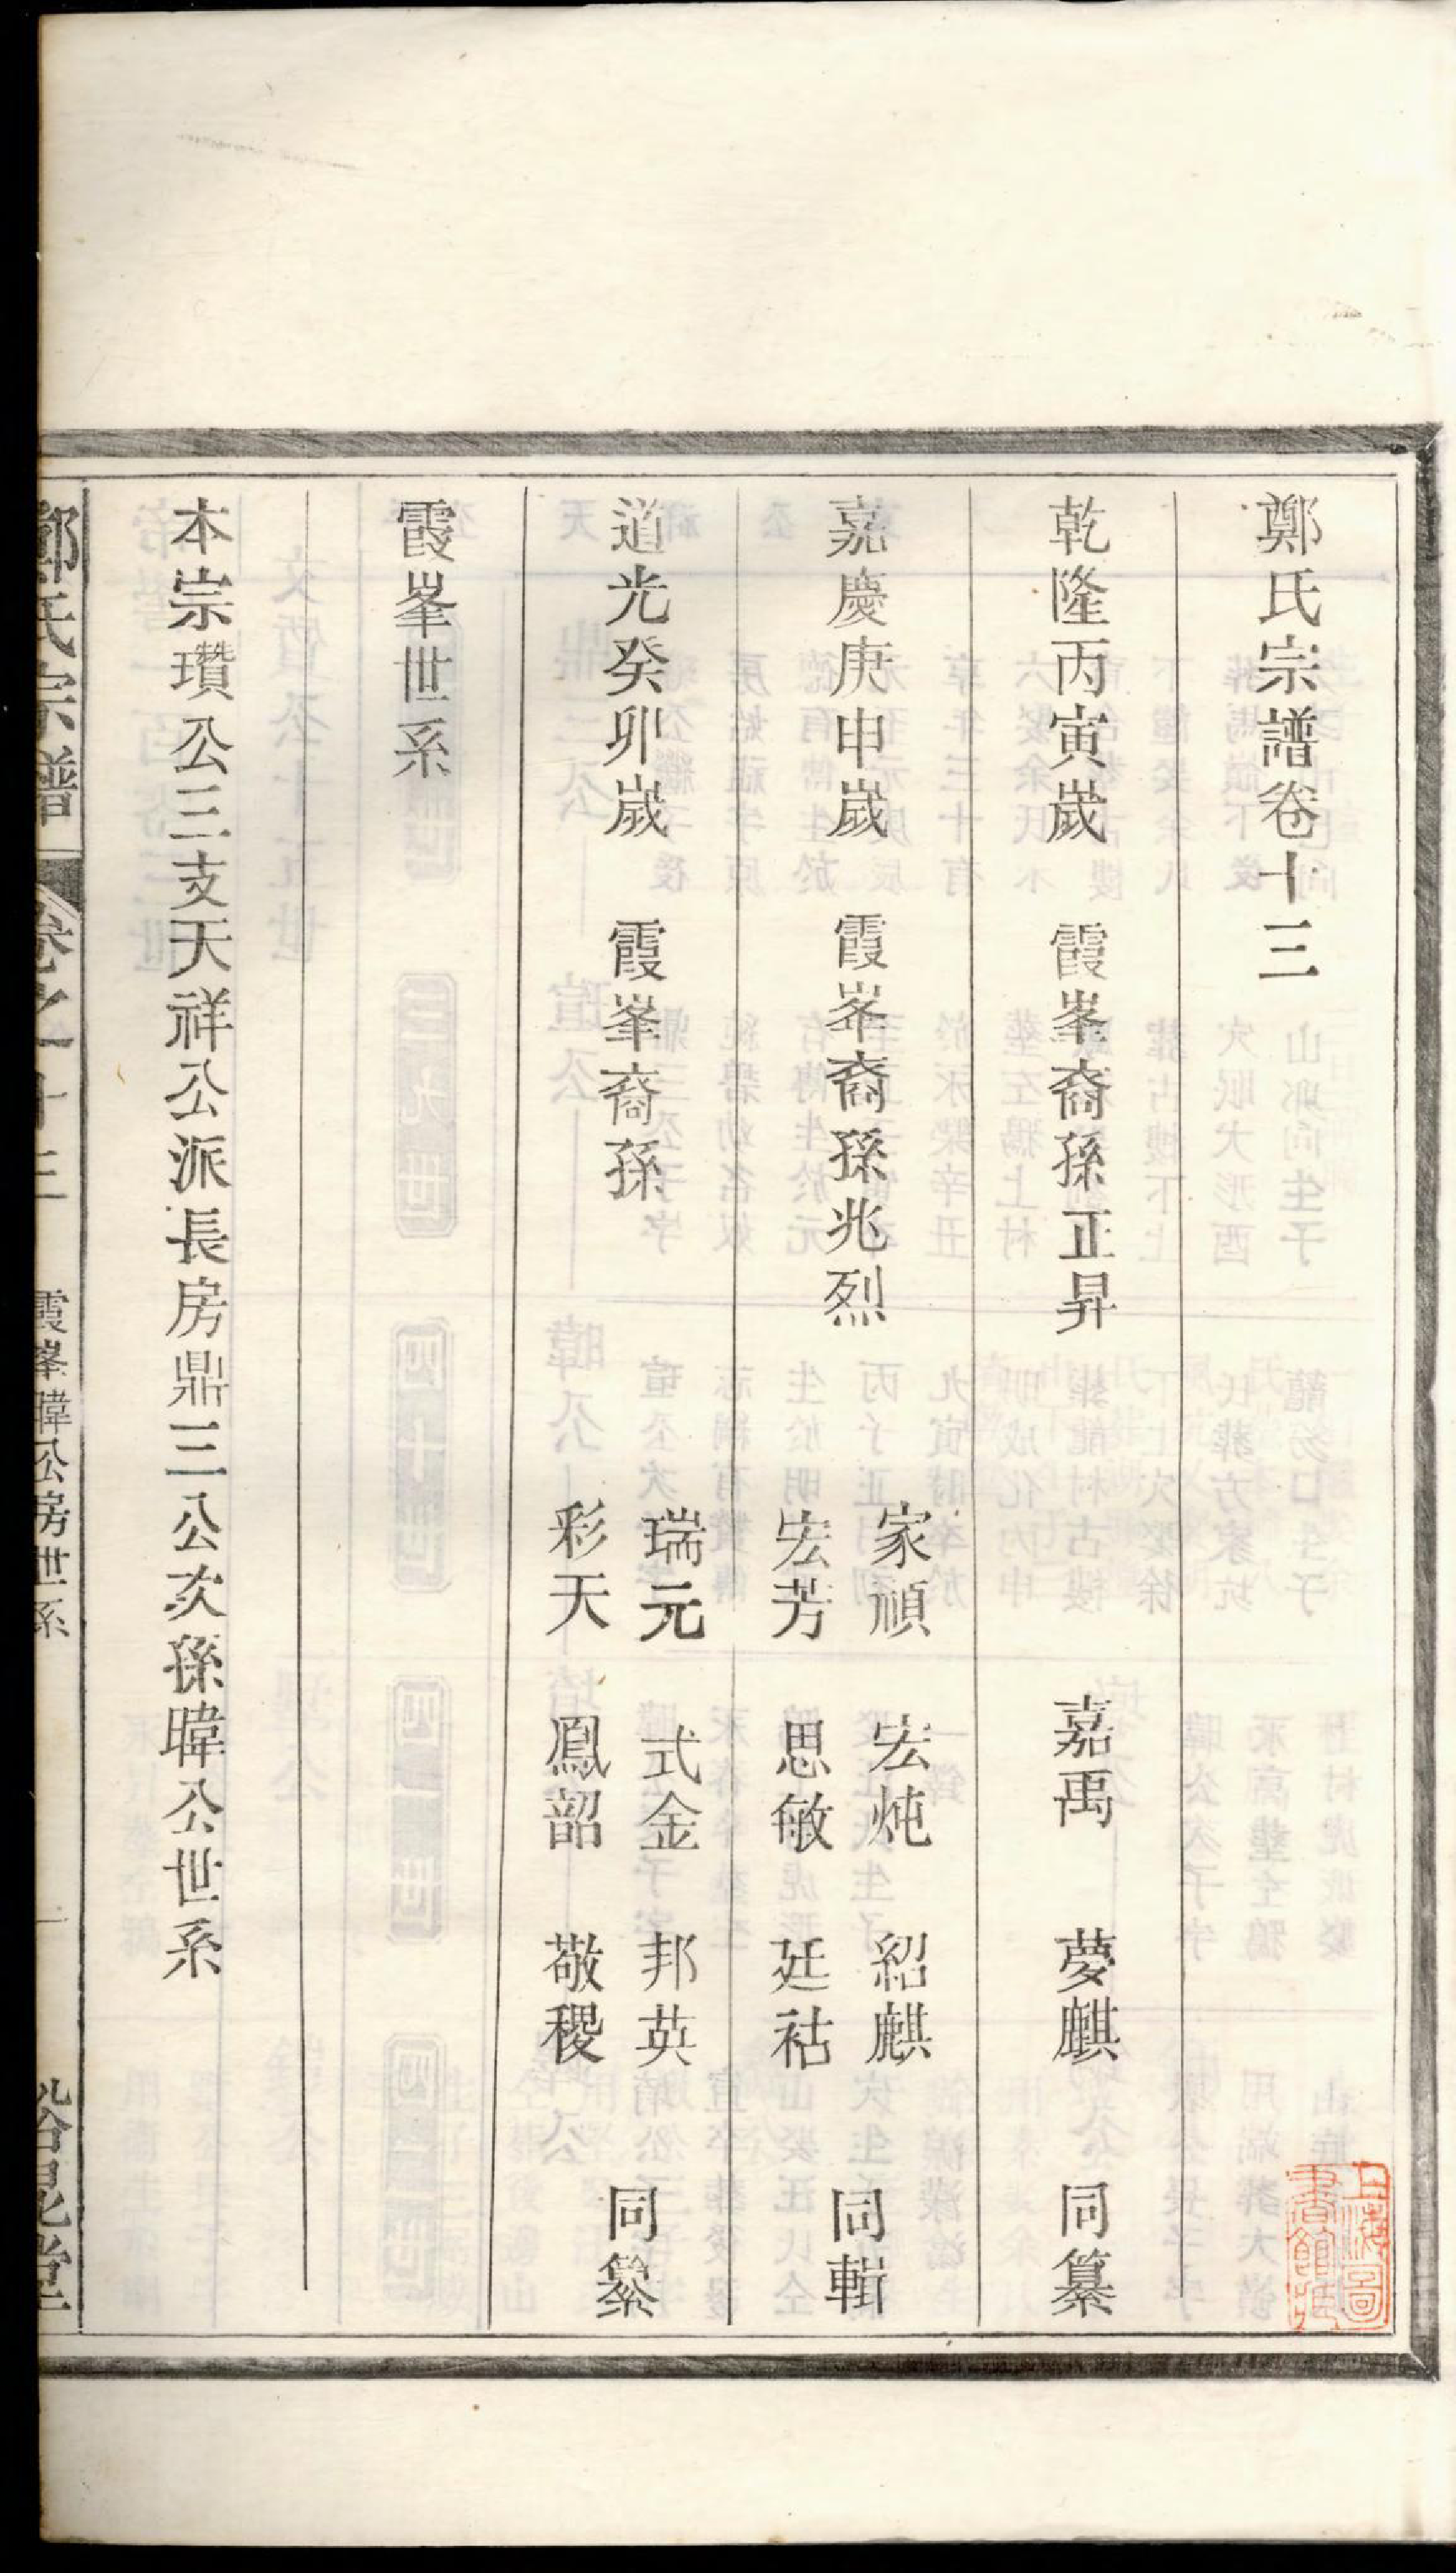 鄭氏宗譜卷十三
乾隆丙寅歲　霞峯裔孫正昇　嘉禹　夢麒　同纂
嘉慶庚申歲　霞峯裔孫兆烈　家禎　宏炖　紹麒
宏芳　思敏　廷祜　同輯
道光癸卯歲　霞峯裔孫　瑞元　式金　邦英
彩天　鳳韶　敬稷　同纂
霞峯世系
本宗瓚公三支天祥公派長房鼎三公次孫暐公世系
鄭氏宗譜　卷之十三　霞峯暐公房世系　一
上海圖書館藏